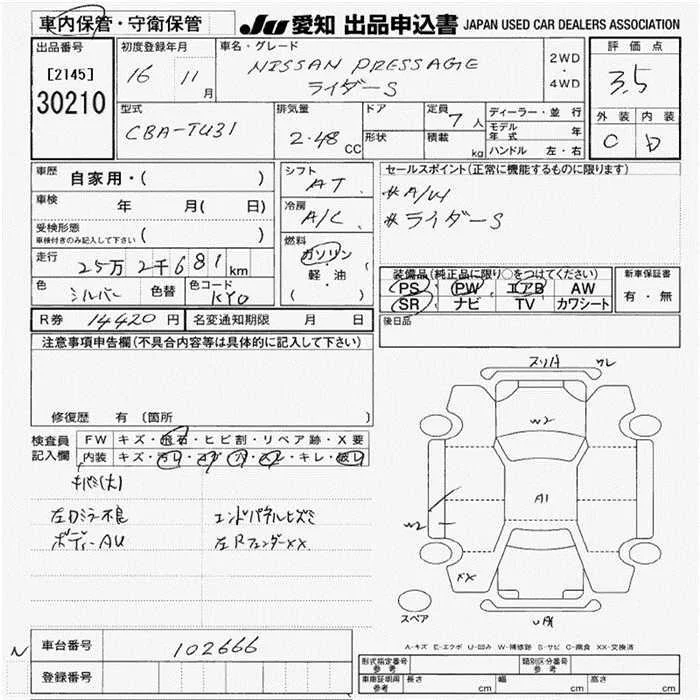 車内保管・守衛保管 JU愛知 出品申込書 JAPAN USED CAR DEALERS ASSOCIATION
出品番号 [2145] 30210
初度登録年月 16 11月
車名・グレード NISSAN PRESSAGE ライダーS
2WD・4WD
評価点 3.5
外装 C 内装 D
型式 CBA-TU31
排気量 2.48 CC
ドア 形状
定員 7人
積載 kg
ディーラー・並行
モデル年式 年
ハンドル 左・右
車歴 自家用・( )
車検 年 月( 日)
受検形態 車検付きのみ記入して下さい ( )
走行 25万2千681 km
色 シルバー 色替 色コード KY0
シフト AT
冷房 A/C
燃料 ガソリン・軽油 ( )
セールスポイント(正常に機能するものに限ります)
#A/W
#ライダーS
装備品(純正品に限り○をつけてください)
PS PW エアB AW
SR ナビ TV カワシート
新車保証書 有・無
R券 14420円 名変通知期限 月 日
後日品
注意事項申告欄(不具合内容等は具体的に記入して下さい)
修復歴 有 〔箇所 〕
検査員記入欄
FW キズ・飛石・ヒビ割・リペア跡・X要
内装 キズ・汚レ・コゲ・穴・スレ・キレ・破レ
左ドミラー不良 エンドパネルヒズミ
ボディーAU 左RフェンダーXX
W2
A1
W2
XX
スペア
A-キズ E-エクボ U-凹み W-補修跡 S-サビ C-腐食 XX-交換済
車台番号 102666
登録番号
型式指定番号 参考 類別区分番号 参考
車庫証明用 参考 長さ cm 幅 cm 高さ cm
N